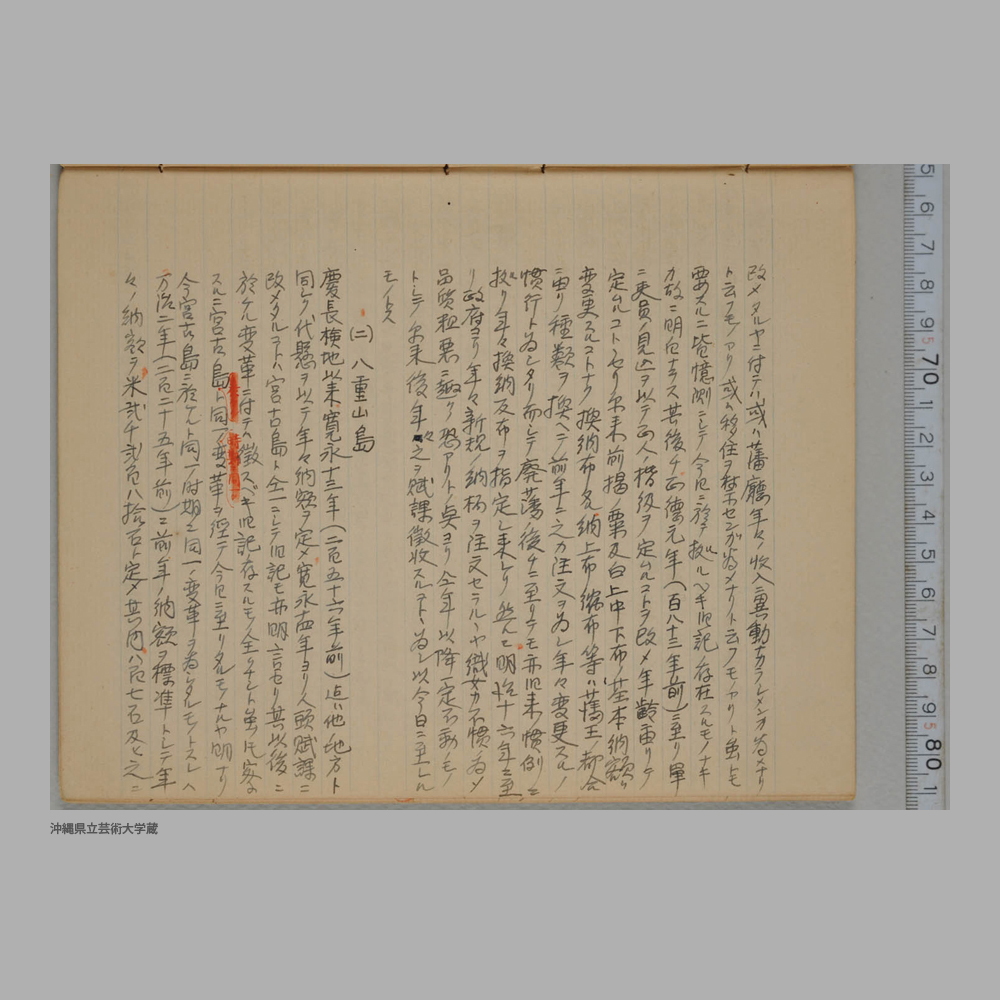 改メタルヤニ付テハ或ハ藩廳年々ノ收入ニ異動ナカラシメンガ為メナリ
ト云フモノアリ或ハ移住ヲ禁センガ為メナリト云フモノアリト雖モ
要スルニ皆憶測ニシテ今日ニ於テ拠ルヘキ旧記ノ存在スルモノナキ
カ故ニ明カナラス其後チ正徳元年(百八十三年前)ニ至リ単
ニ吏員ノ見込ヲ以テ正人ノ階級ヲ定ムルコトヲ改メ年齢ニ由リテ
定ムルコトセリ尓来前揭ノ粟及白上中下布ノ基本納額ハ
変更スルコトナク換納布名納上布縮布等ハ藩王ノ都合
ニ由リ種類ヲ換ヘテ前年ニ之カ注文ヲ為シ年々変更スルノ
慣行ト為シタリ而シテ廃藩ノ後チニ至リテモ亦旧来ノ慣例ニ
拠リ年々換納反布ヲ指定シ来レリ然ルニ明治十六年ニ至
リ政府ヨリ年々新規ノ納柄ヲ注文セラルヽヤ織女カ不慣ノ為メ
品質粗悪ニ趣クノ恐アリトノ点ヨリ仝年以降一定不動ノモノ
トシテ尓来後年々之ヲ賦課徴收スルコトヽ為シ以今日ニ至レル
モノトス
(二)八重山島
慶長検地以来寛永十三年(二百五十六年前)迄ハ他ノ地方ト
同シク代懸ヲ以テ年々納額ヲ定メ寛永十四年ヨリ人頭賦課ニ
改メタルコトハ宮古島ト仝一ニシテ旧記モ亦明言セリ其以後ニ
於ケル変革ニ付テハ徴スベキ旧記ノ存スルモノ全クナシト雖トモ要
スルニ宮古島ト同一ノ変革ヲ経テ今日ニ至リタルモノナルヤ明ナリ
今宮古島ニ於ケルト同一ノ時期ニ同一ノ変革ヲ為シタルモノトスレハ
万治二年(二百二十五年前)ニ前年ノ納額ヲ標準トシテ年
々ノ納額ヲ米弐千弐百八拾石ト定メ其内八百七石及ヒ之ニ
沖縄県立芸術大学蔵